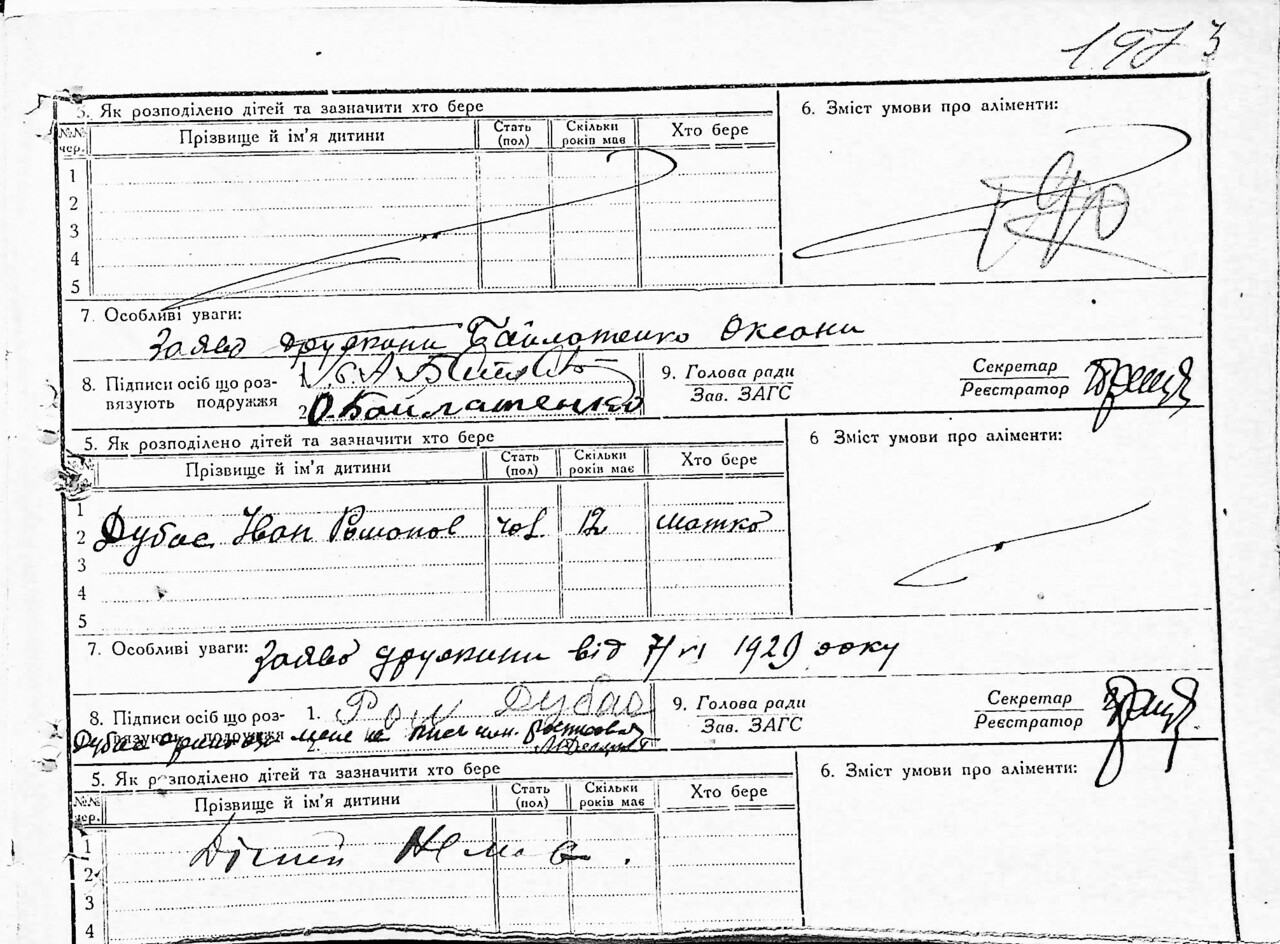 197 3
5. Як розподілено дітей та зазначити хто бере
№№ чер.
Прізвище й ім'я дитини
Стать (пол)
Скільки років має
Хто бере
1
2
3
4
5
6. Зміст умови про аліменти:
7. Особливі уваги:
Заява дружини Байлатенко Оксани
8. Підписи осіб що роз-
вязують подружжя
1.
2. О. Байлатенко
9. Голова ради
Зав. ЗАГС
Секретар
Реєстратор
5. Як розподілено дітей та зазначити хто бере
№
Прізвище й ім'я дитини
Стать (пол)
Скільки років має
Хто бере
1
2 Дубас Іван Романов чол 12 матка
3
4
5
6 Зміст умови про аліменти:
7. Особливі уваги:
Заява дружини від 7/VI 1929 року
8. Підписи осіб що роз-
вязують подружжя
1. Ром Дубас
2.
Дубас
9. Голова ради
Зав. ЗАГС
Секретар
Реєстратор
5. Як розподілено дітей та зазначити хто бере
№№ чер.
Прізвище й ім'я дитини
Стать (пол)
Скільки років має
Хто бере
1
Дітей Нема.
2
3
4
6. Зміст умови про аліменти: